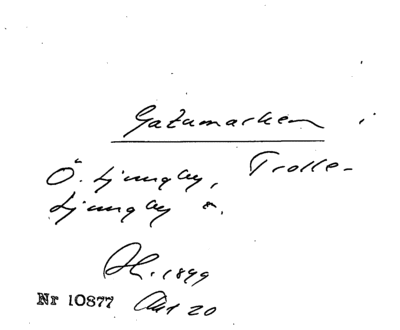 Gatumarken i
Ö. Ljungby, Trolle-
Ljungby s.
1899
Nr 10877 Akt 20